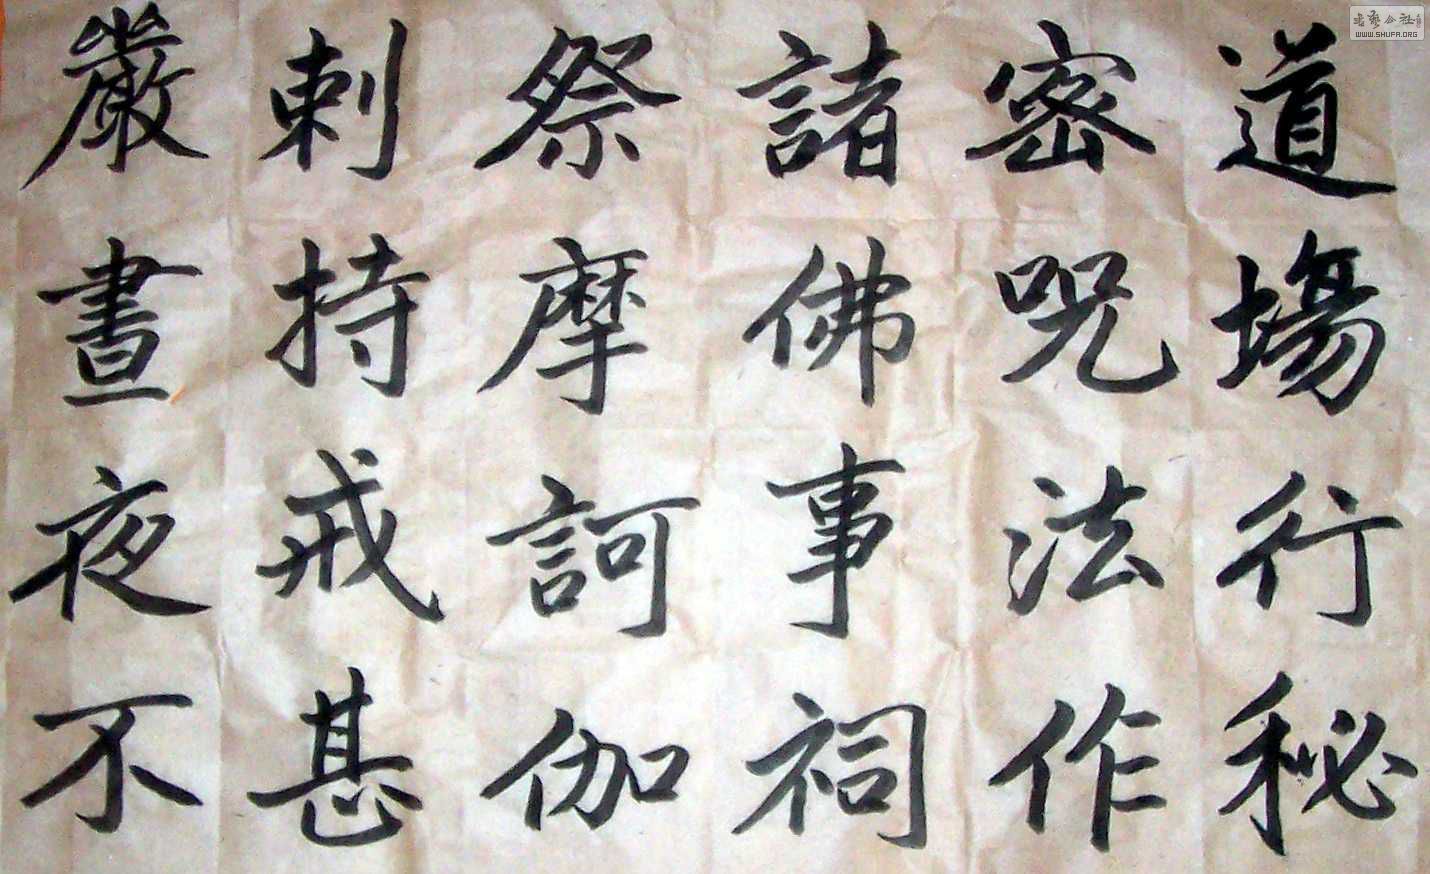 道場行秘
密呪法作
諸佛事祠
祭摩訶伽
剌持戒甚
嚴晝夜不
WWW.SHUFA.ORG